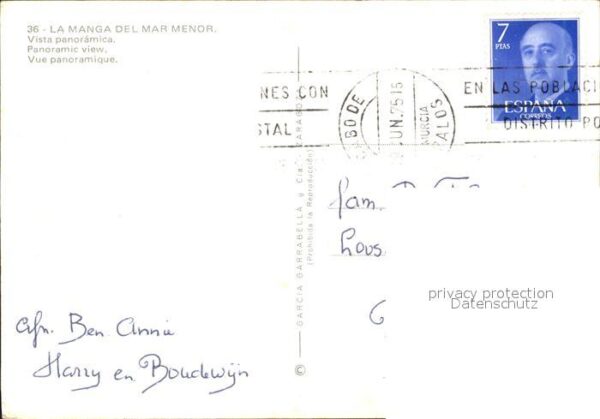 36 - LA MANGA DEL MAR MENOR.
Vista panorámica.
Panoramic view.
Vue panoramique.
7
PTAS
ESPAÑA
CORREOS
NES CON
STAL
BO DE
JUN. 75 15
MURCIA
ALOS
EN LAS POBLACI
DISTRITO PO
GARCIA GARRABELLA y Cía. ZARAGO
(Prohibida la Reproducción)
©
fam.
privacy protection
Datenschutz
afn. Ben Annie
Harry en Boudewijn